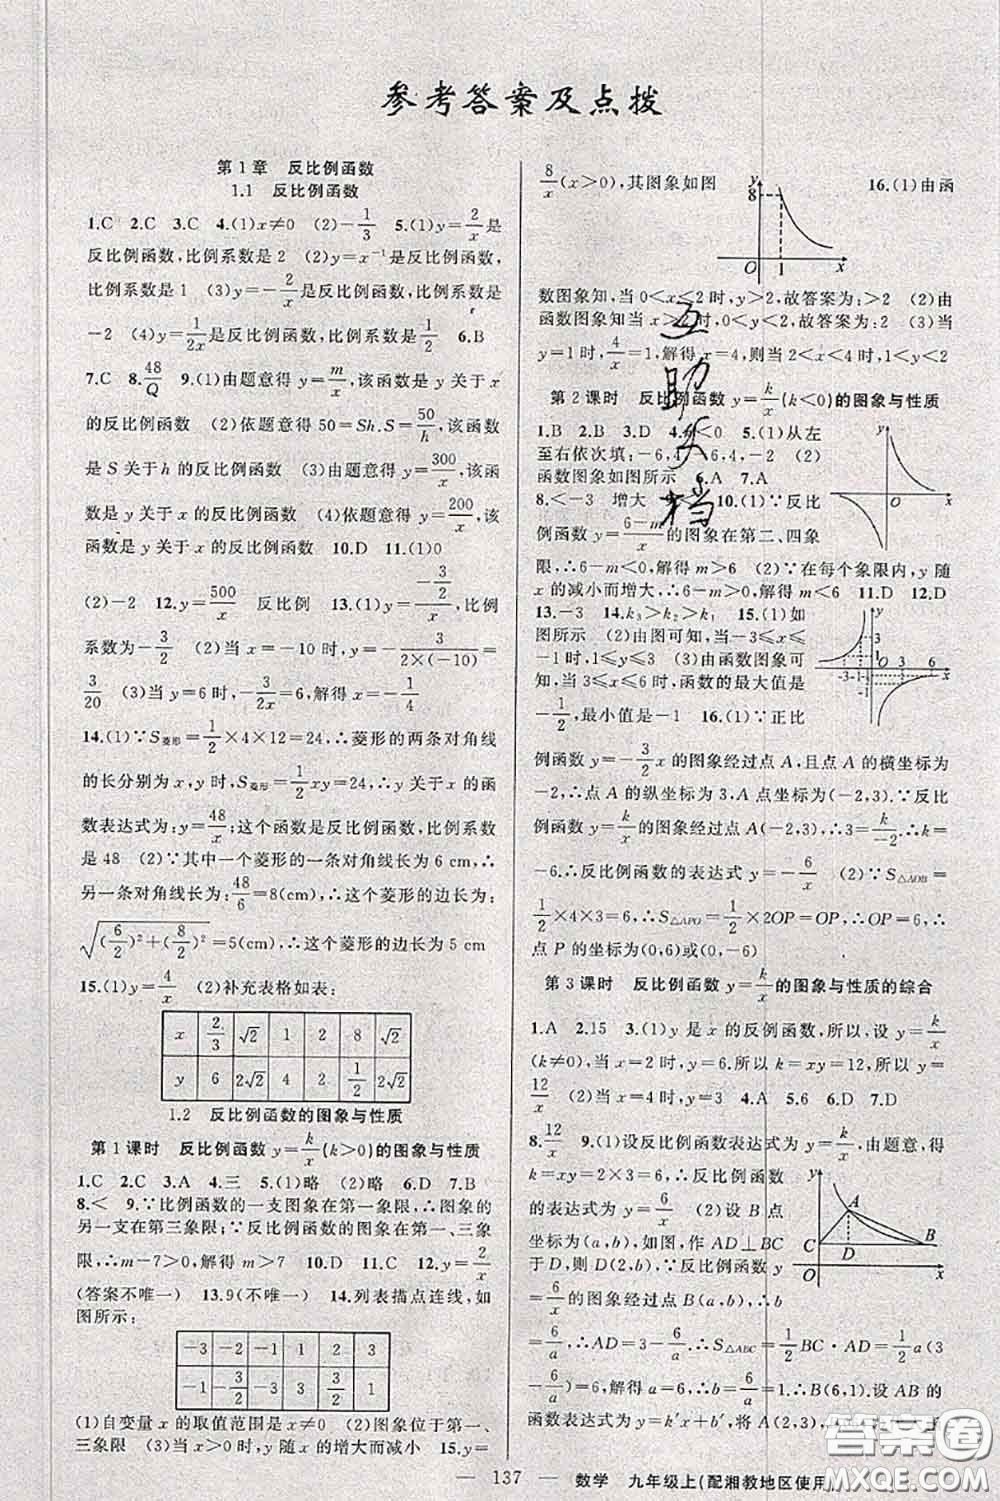 参考答案及点拨
第1章　反比例函数
1.1　反比例函数
1.C　2.C　3.C　4.(1)x≠0　(2)-1/3　5.(1)y=2/x是
反比例函数,比例系数是2　(2)y=x⁻¹是反比例函数,
比例系数是1　(3)y=-2/x是反比例函数,比例系数是
-2　(4)y=1/2x是反比例函数,比例系数是1/2　6.B
7.C　8.48/Q　9.(1)由题意得y=m/x,该函数是y关于x的
反比例函数　(2)依题意得50=Sh.S=50/h,该函数
是S关于h的反比例函数　(3)由题意得y=300/x,该函
数是y关于x的反比例函数　(4)依题意得y=200/x,该
函数是y关于x的反比例函数　10.D　11.(1)0
(2)-2　12.y=500/x　反比例　13.(1)y=(-3/2)/x,比例
系数为-3/2　(2)当x=-10时,y=-3/(2×(-10))=
3/20　(3)当y=6时,-3/2x=6,解得x=-1/4
14.(1)∵S菱形=1/2×4×12=24,∴菱形的两条对角线
的长分别为x,y时,S菱形=1/2xy=24,∴y关于x的函
数表达式为:y=48/x;这个函数是反比例函数,比例系数
是48　(2)∵其中一个菱形的一条对角线长为6 cm,∴
另一条对角线长为:48/6=8(cm),∴这个菱形的边长为:
√((6/2)²+(8/2)²)=5(cm),∴这个菱形的边长为5 cm
15.(1)y=4/x　(2)补充表格如表:
x　2/3　√2　1　2　8　√2
y　6　2√2　4　2　1/2　2√2
1.2　反比例函数的图象与性质
第1课时　反比例函数y=k/x(k>0)的图象与性质
1.C　2.C　3.A　4.三　5.(1)略　(2)略　6.D　7.B
8.<　9.∵比例函数的一支图象在第一象限,∴图象的
另一支在第三象限;∵反比例函数的图象在第一、三象
限,∴m-7>0,解得m>7　10.D　11.C　12.y=2/x
(答案不唯一)　13.9(不唯一)　14.列表描点连线,如
图所示:
-3　-2　-1　1　2　3
-1　-3/2　-3　3　3/2　1
(1)自变量x的取值范围是x≠0　(2)图象位于第一、
三象限　(3)当x>0时,y随x的增大而减小　15.y=
8/x(x>0),其图象如图　16.(1)由函
y　8　O　1　x
数图象知,当0<x≤2时,y>2,故答案为:>2　(2)由
函数图象知当x>2时,0<y<2,故答案为:2　(3)当
y=1时,4/x=1,解得x=4,则当2<x<4时,1<y<2
第2课时　反比例函数y=k/x(k<0)的图象与性质
1.B　2.B　3.D　4.<0　5.(1)从左
至右依次填:-6,4,6,4,-2　(2)
函数图象如图所示　6.A　7.A
y　O　x
8.<-3　增大　9.　10.(1)∵反比
例函数y=(6-m)/x的图象在第二、四象
限,∴6-m<0,解得m>6　(2)∵在每个象限内,y随
x的减小而增大,∴6-m>0,解得m<6　11.D　12.D
13.-3　14.k₃>k₂>k₁　15.(1)如
图所示　(2)由图可知,当-3≤x≤
-1时,1≤y≤3　(3)由函数图象可
知,当3≤x≤6时,函数的最大值是
-1/2,最小值是-1　16.(1)∵正比
y　3　1　O　-3　-1　3　6　x
例函数y=-3/2x的图象经过点A,且点A的横坐标为
-2,∴点A的纵坐标为3,A点坐标为(-2,3).∵反比
例函数y=k/x的图象经过点A(-2,3),∴3=k/-2.∴k=
-6.∴反比例函数的表达式y=-6/x　(2)∵S△AOB=
1/2×4×3=6.∴S△APO=1/2×2OP=OP,∴OP=6,∴
点P的坐标为(0,6)或(0,-6)
第3课时　反比例函数y=k/x的图象与性质的综合
1.A　2.15　3.(1)y是x的反例函数,所以,设y=k/x
(k≠0),当x=2时,y=6,所以k=xy=12,所以y=
12/x　(2)当x=4时,y=3　4.A　5.6　6.D　7.D
8.12/x　9.(1)设反比例函数表达式为y=k/x,由题意,得
k=xy=2×3=6.∴反比例函数
的表达式为y=6/x　(2)设B点
坐标为(a,b),如图,作AD⊥BC
于D,则D(2,b),∵反比例函数y=
6/x的图象经过点B(a,b),∴b
A　C　B　D　O　x
=6/a,∴AD=3-6/a.∴S△ABC=1/2BC·AD=1/2a(3
-6/a)=6,解得a=6,∴b=6/a=1.∴B(6,1).设AB的
函数表达式为y=k′x+b′,将A(2,3),
137　数学　九年级上(配湘教地区使用)
互助文档
答案圈
MXQE.COM